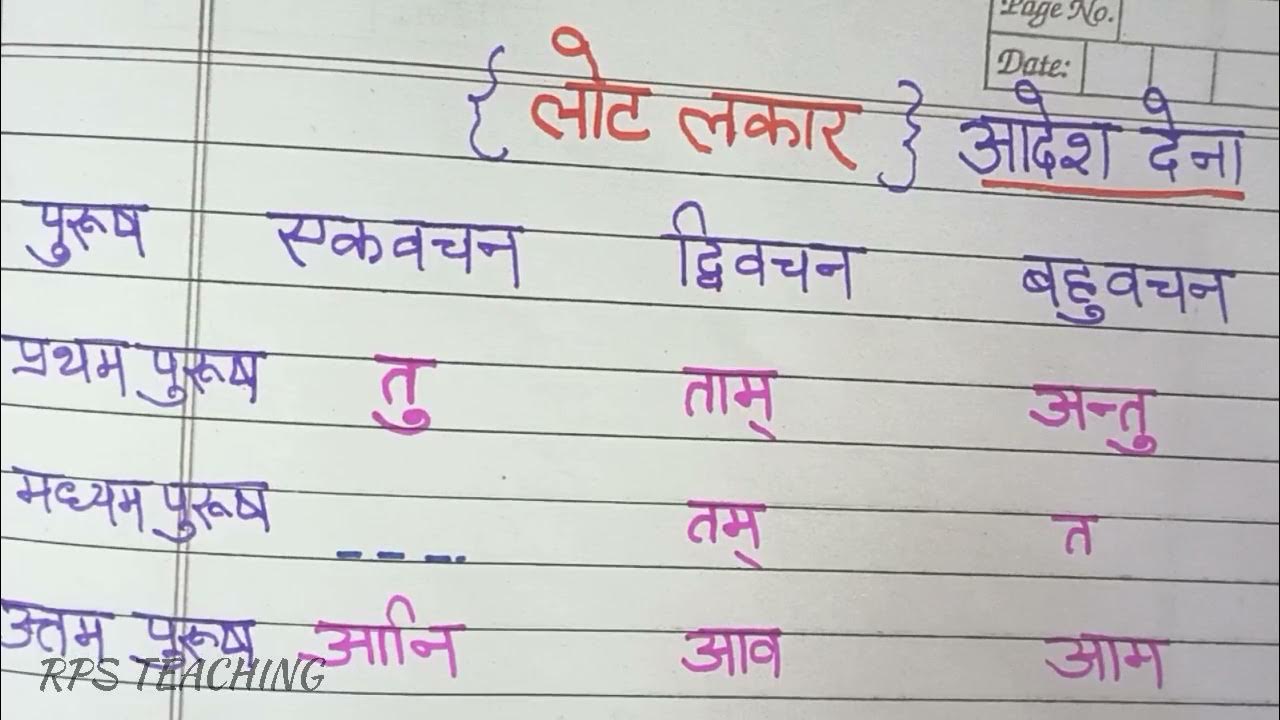 Page No.
Date:
{ लोट लकार } आदेश देना
पुरूष एकवचन द्विवचन बहुवचन
प्रथम पुरूष तु ताम् अन्तु
मध्यम पुरूष --- तम् त
उत्तम पुरूष आनि आव आम
RPS TEACHING